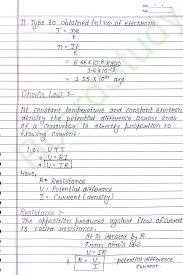 II Type to obtained (n) no. of electrons
I = ne
t
n = It
e
= 6.65 × 10⁻³ × 400
1.6 × 10⁻¹⁹
= 1.25 × 10²¹
Ohm's Law :-
At constant temperature and constant electron
density the potential difference across ends
of a conductor is directly proportion to
flowing current.
i.e. V ∝ I
V = RI
V = IR
Here,
R = Resistance
V = Potential difference
I = Current (density)
Resistance :-
The opposition produced against flow of current
is called resistance.
It is denoted by R.
From ohm's law
V = IR
R = V potential difference
I current